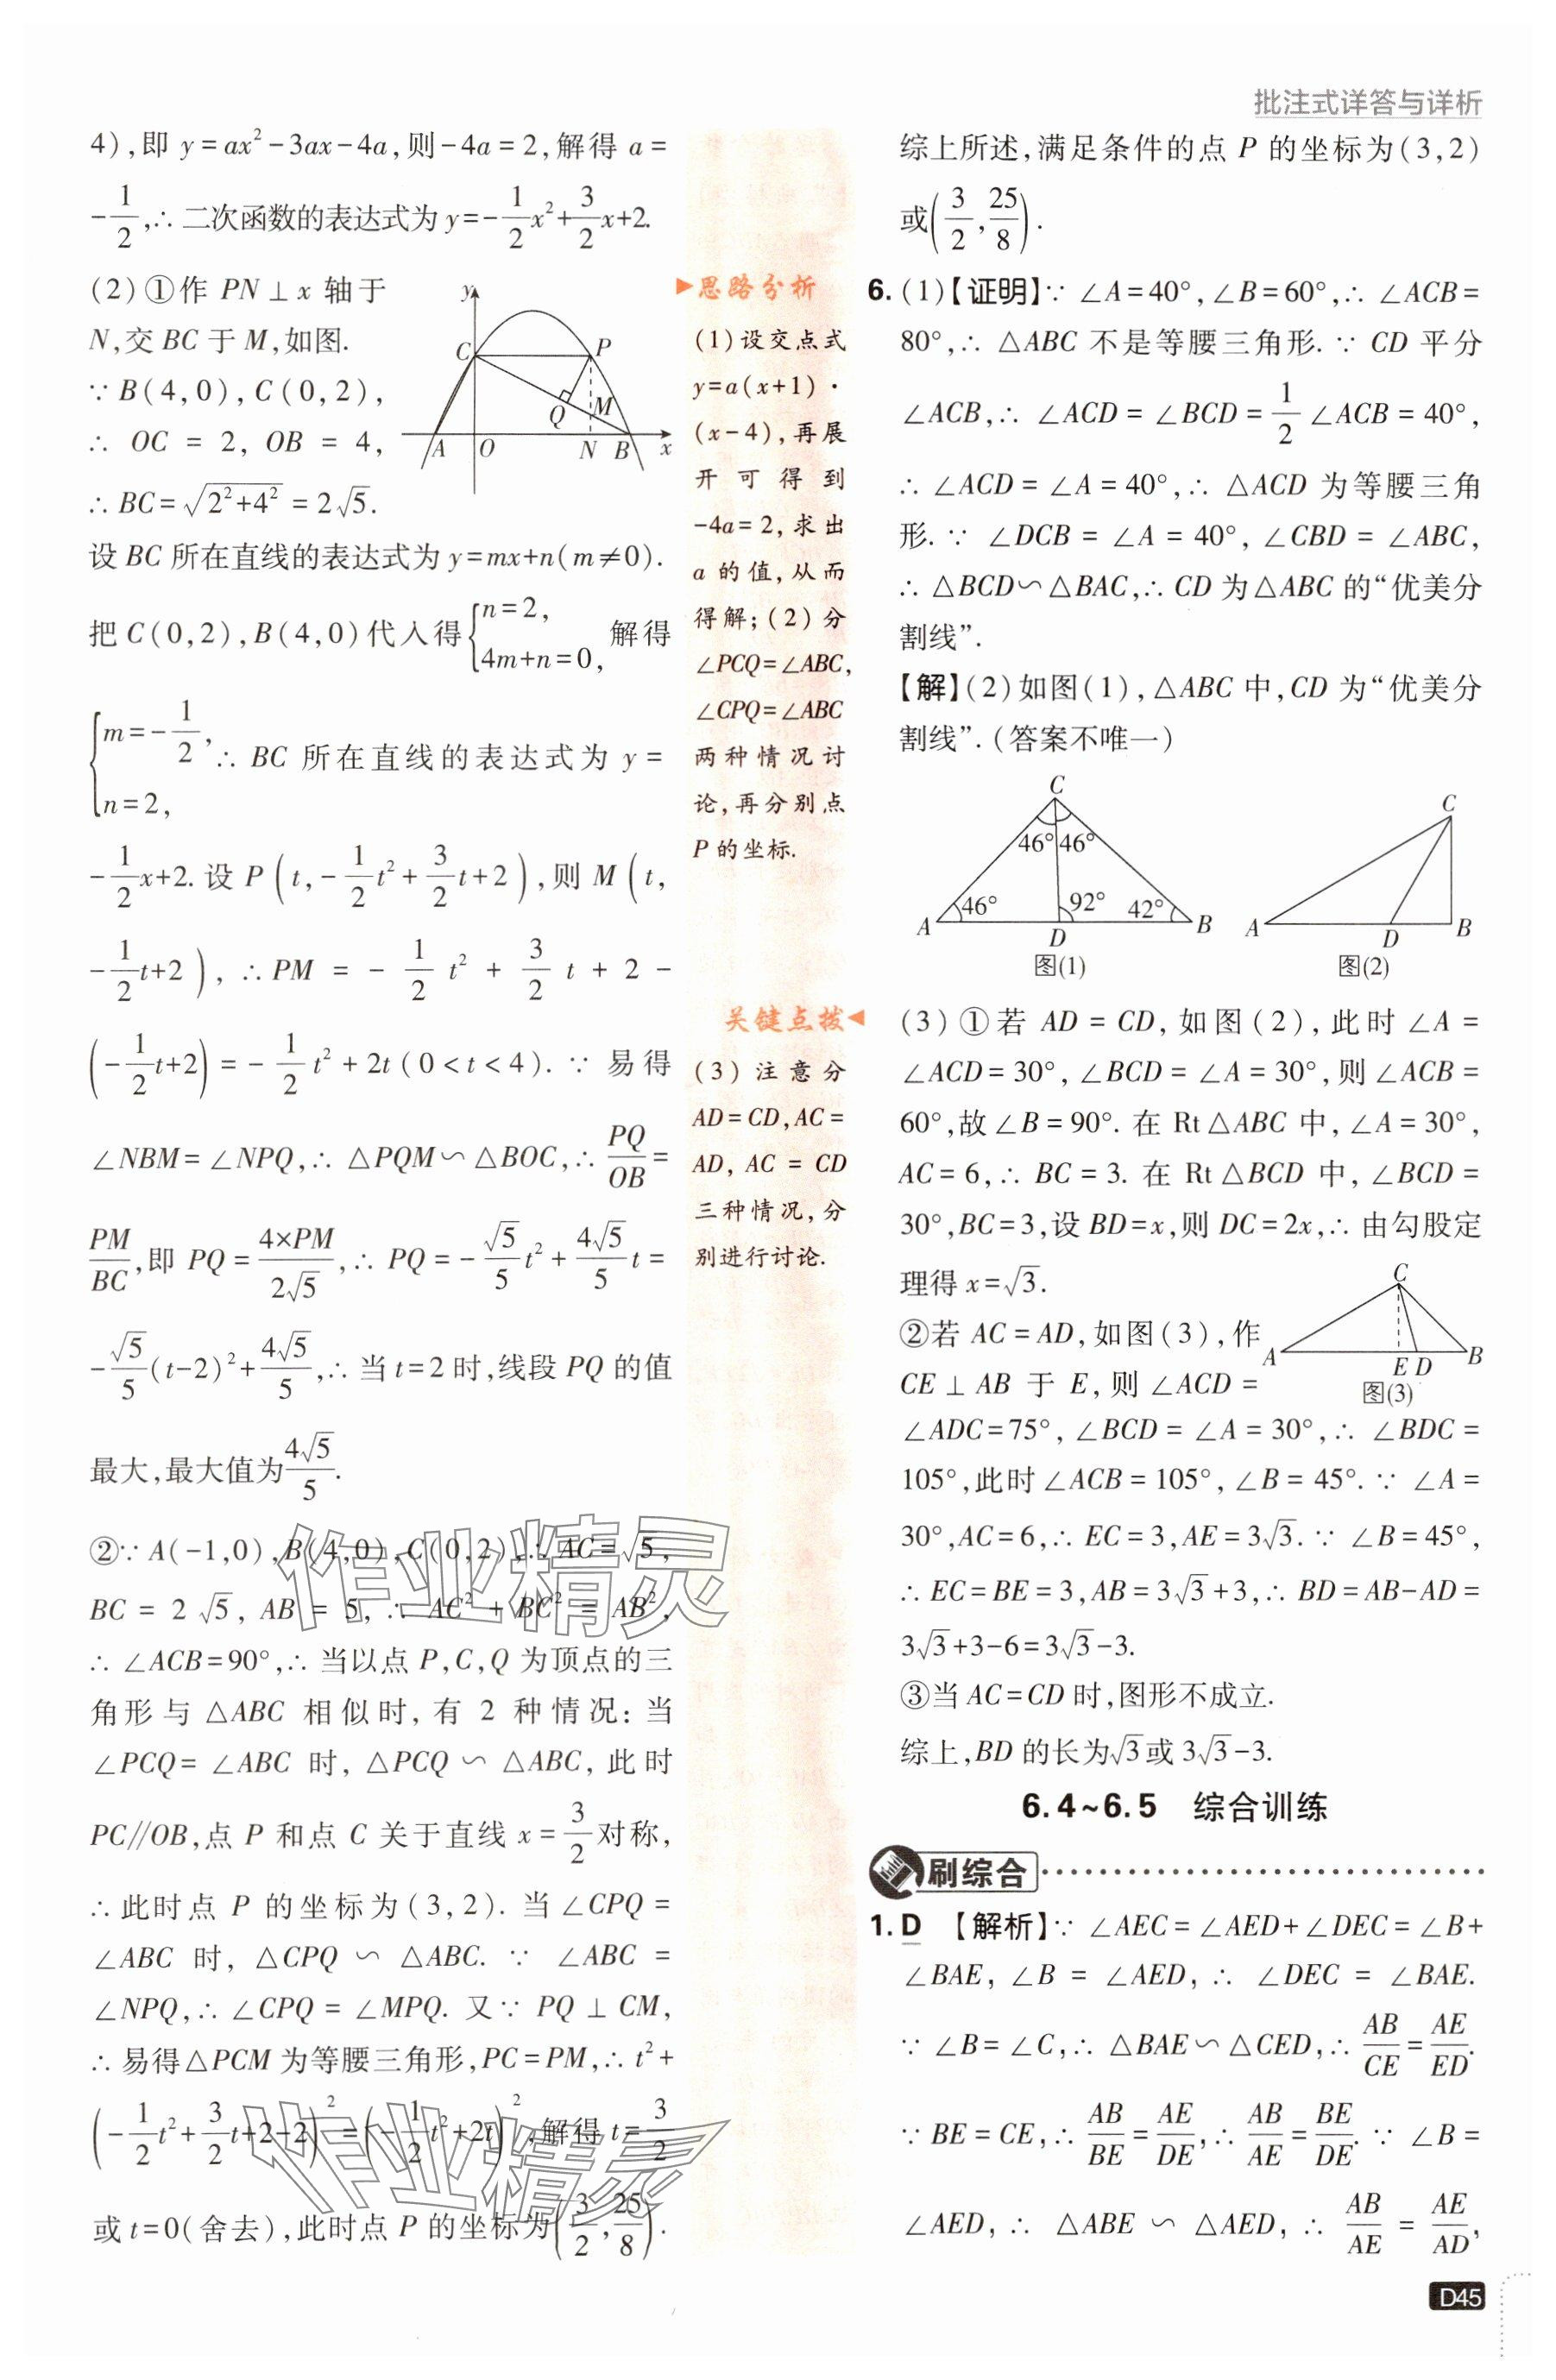 批注式详答与详析
4),即 y=ax²-3ax-4a,则-4a=2,解得 a=
-1/2,∴ 二次函数的表达式为 y=-1/2x²+3/2x+2.
(2)①作 PN⊥x 轴于
N,交 BC 于 M,如图.
∵ B(4,0),C(0,2),
∴ OC = 2, OB = 4,
∴ BC=√(2²+4²) = 2√5.
y
C
P
Q
M
A
O
N
B
x
设 BC 所在直线的表达式为 y=mx+n(m≠0).
把 C(0,2),B(4,0)代入得{n=2, 4m+n=0, 解得
{m=-1/2, n=2, ∴ BC 所在直线的表达式为 y=
-1/2x+2. 设 P(t,-1/2t²+3/2t+2),则 M(t,
-1/2t+2), ∴PM = -1/2t²+3/2t+2-
(-1/2t+2)=-1/2t²+2t(0<t<4). ∵ 易得
∠NBM=∠NPQ,∴ △PQM∽△BOC,∴ PQ/OB=
PM/BC,即 PQ=4×PM/2√5,∴ PQ=-√5/5t²+4√5/5t=
-√5/5(t-2)²+4√5/5,∴ 当 t=2 时,线段 PQ 的值
最大,最大值为4√5/5.
②∵ A(-1,0),B(4,0),C(0,2),∴ AC=√5,
BC = 2√5, AB = 5, ∴ AC²+BC²=AB²,
∴ ∠ACB=90°,∴ 当以点 P,C,Q 为顶点的三
角形与 △ABC 相似时,有 2 种情况:当
∠PCQ=∠ABC 时,△PCQ∽△ABC,此时
PC∥OB,点 P 和点 C 关于直线 x=3/2对称,
∴ 此时点 P 的坐标为(3,2). 当∠CPQ=
∠ABC 时,△CPQ∽△ABC. ∵ ∠ABC=
∠NPQ,∴ ∠CPQ=∠MPQ. 又∵ PQ⊥CM,
∴ 易得△PCM 为等腰三角形,PC=PM,∴ t²+
(-1/2t²+3/2t+2-2)²=(-1/2t²+2t)²,解得 t=3/2
或 t=0(舍去),此时点 P 的坐标为(3/2,25/8).
思路分析
(1)设交点式
y=a(x+1)·
(x-4),再展
开可得到
-4a=2,求出
a 的值,从而
得解;(2)分
∠PCQ=∠ABC,
∠CPQ=∠ABC
两种情况讨
论,再分别点
P 的坐标.
关键点拨
(3)注意分
AD=CD,AC=
AD, AC = CD
三种情况,分
别进行讨论.
综上所述,满足条件的点 P 的坐标为(3,2)
或(3/2,25/8).
6. (1)【证明】∵ ∠A=40°,∠B=60°,∴ ∠ACB=
80°,∴ △ABC 不是等腰三角形. ∵ CD 平分
∠ACB,∴ ∠ACD=∠BCD=1/2∠ACB=40°,
∴ ∠ACD=∠A=40°,∴ △ACD 为等腰三角
形. ∵ ∠DCB=∠A=40°,∠CBD=∠ABC,
∴ △BCD∽△BAC,∴ CD 为△ABC 的“优美分
割线”.
【解】(2)如图(1),△ABC 中,CD 为“优美分
割线”.(答案不唯一)
C
46° 46°
46° 92° 42°
A
D
B
图(1)
C
A
D
B
图(2)
(3)①若 AD=CD,如图(2),此时∠A=
∠ACD=30°,∠BCD=∠A=30°,则∠ACB=
60°,故∠B=90°. 在 Rt△ABC 中,∠A=30°,
AC=6,∴ BC=3. 在 Rt△BCD 中,∠BCD=
30°,BC=3,设 BD=x,则 DC=2x,∴ 由勾股定
理得 x=√3.
②若 AC=AD,如图(3),作
CE⊥AB 于 E,则∠ACD=
C
A
E D
B
图(3)
∠ADC=75°,∠BCD=∠A=30°,∴ ∠BDC=
105°,此时∠ACB=105°,∠B=45°. ∵ ∠A=
30°,AC=6,∴ EC=3,AE=3√3. ∵ ∠B=45°,
∴ EC=BE=3,AB=3√3+3,∴ BD=AB-AD=
3√3+3-6=3√3-3.
③当 AC=CD 时,图形不成立.
综上,BD 的长为√3或 3√3-3.
6.4~6.5 综合训练
刷综合
1. D 【解析】∵ ∠AEC=∠AED+∠DEC=∠B+
∠BAE,∠B=∠AED,∴ ∠DEC=∠BAE.
∵ ∠B=∠C,∴ △BAE∽△CED,∴ AB/CE=AE/ED.
∵ BE=CE,∴ AB/BE=AE/DE,∴ AB/AE=BE/DE. ∵ ∠B=
∠AED,∴ △ABE∽△AED,∴ AB/AE=AE/AD,
D45
作业精灵
作业精灵